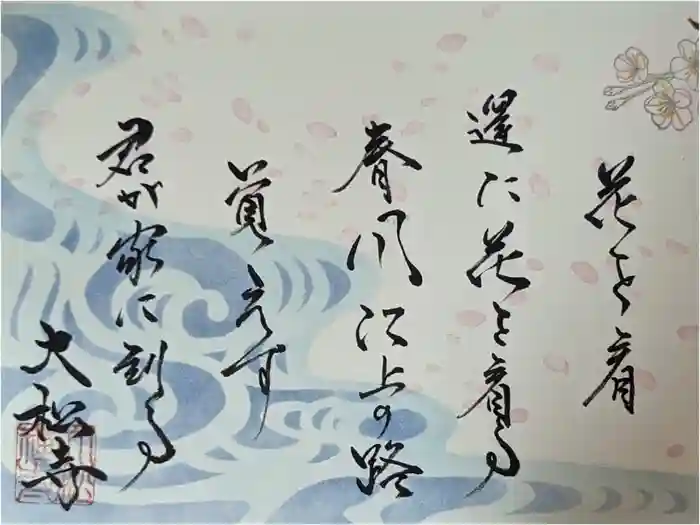 花を看
還た花を看る
春風江上の路
覚えず
君が家に到る
大松寺